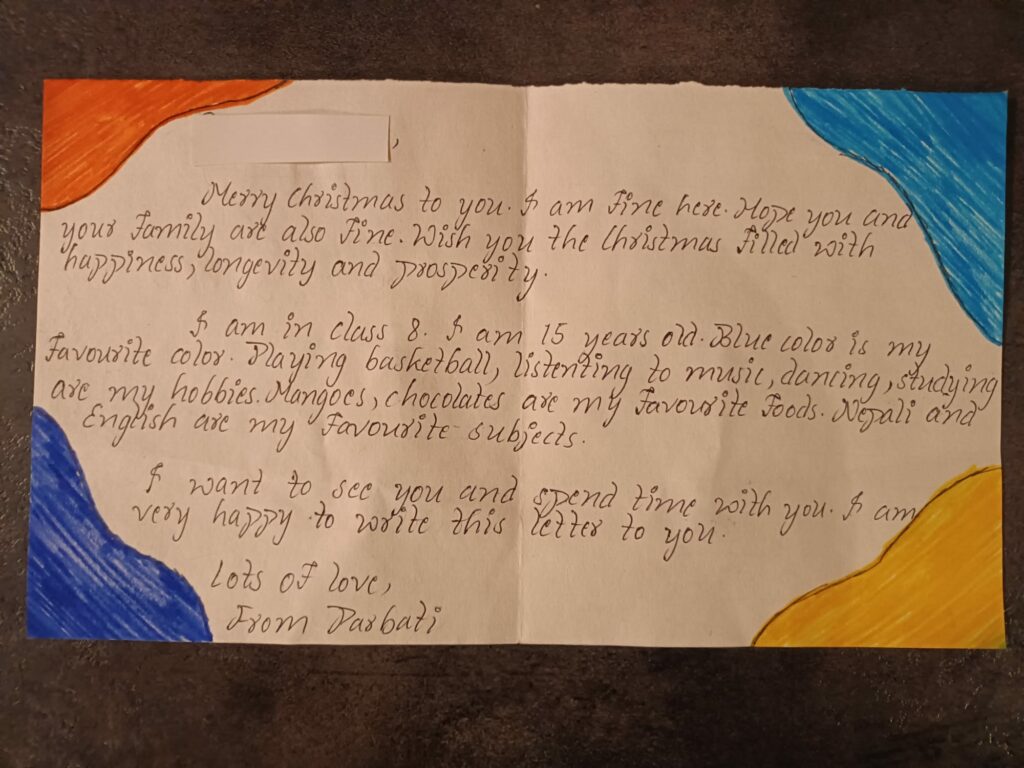 ,
Merry Christmas to you. I am fine here. Hope you and
your family are also fine. Wish you the Christmas filled with
happiness, longevity and prosperity.
I am in class 8. I am 15 years old. Blue color is my
favourite color. Playing basketball, listenting to music, dancing, studying
are my hobbies. Mangoes, chocolates are my favourite foods. Nepali and
English are my favourite subjects.
I want to see you and spend time with you. I am
very happy to write this letter to you.
Lots of love,
From Parbati